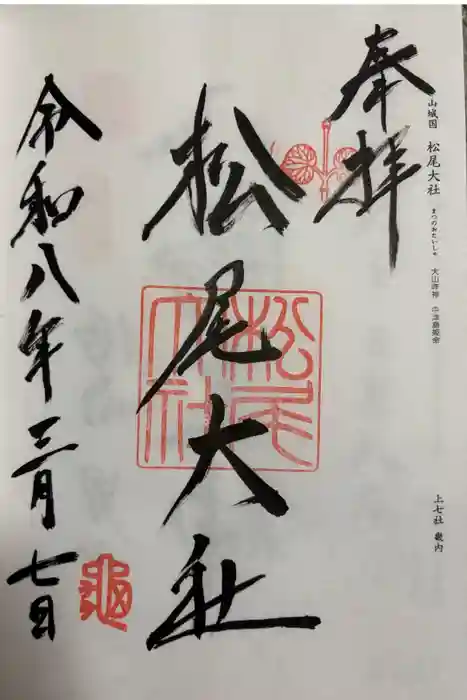 山城国 松尾大社 まつのおたいしゃ 大山咋神 中津島姫命
上七社 畿内
奉拝
松尾大社
松尾大社
令和八年三月七日
亀